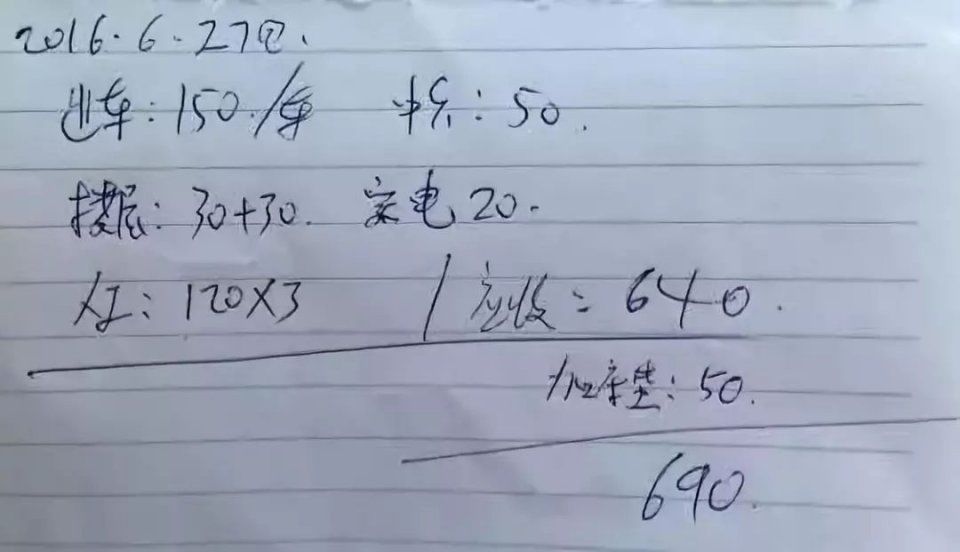 2016.6.27日.
进车:150./车 中长:50.
接层:30+30. 家电20.
人工:120X3 / 应收:640.
加床垫:50.
690.